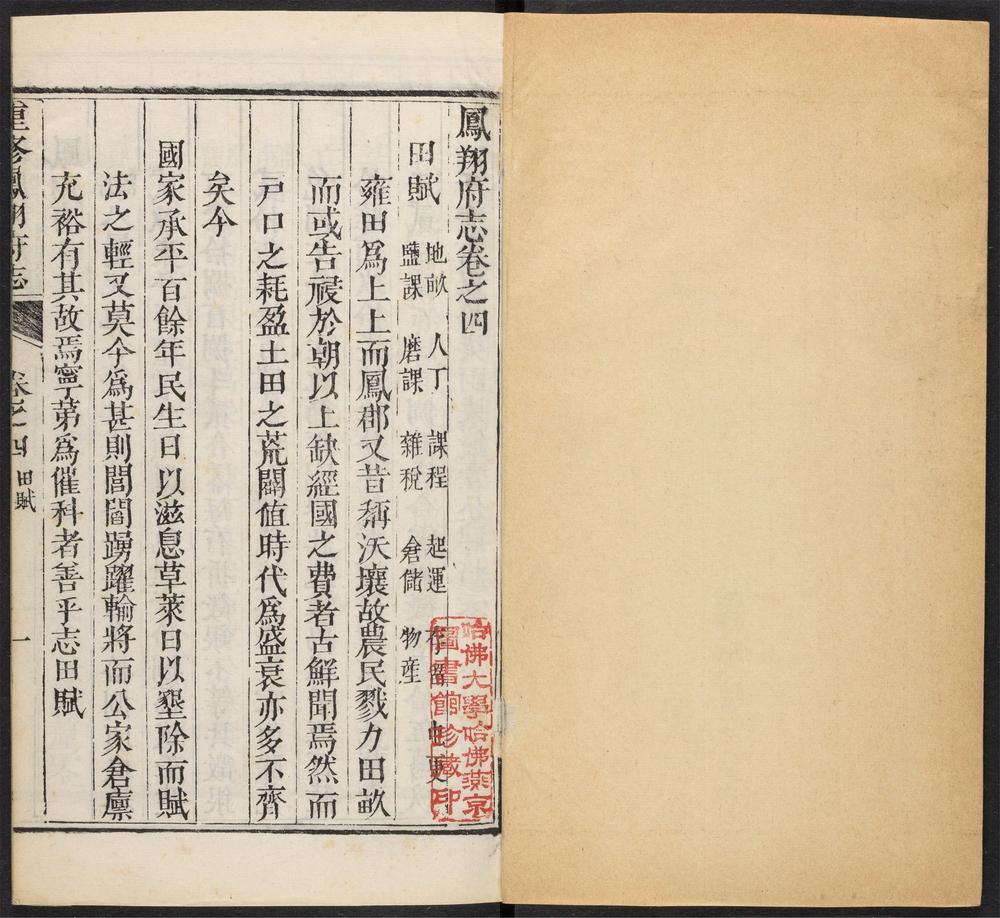 鳳翔府志卷之四
田賦
地畝 人丁 課程 起運 存留 更
鹽課 磨課 雜稅 倉儲 物產
雍田爲上上而鳳郡又昔稱沃壤故農民戮力田畝
而或告祲於朝以上缺經國之費者古鮮聞焉然而
戸口之耗盈土田之荒闢值時代爲盛衰亦多不齊
矣今
國家承平百餘年民生日以滋息草萊日以墾除而賦
法之輕又莫今爲甚則閭閻踴躍輸將而公家倉廪
充裕有其故焉寧第爲催科者善乎志田賦
重修鳳翔府志
卷之四
田賦
一
哈佛大學哈佛燕京
圖書館珍藏印